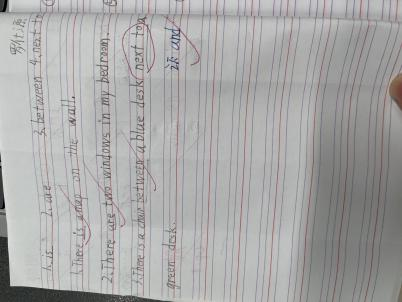 1. is 2. are 3. between 4. next to
1. There is a map on the wall.
2. There are two windows in my bedroom.
3. There is a chair between a blue desk next to a
and
green desk.